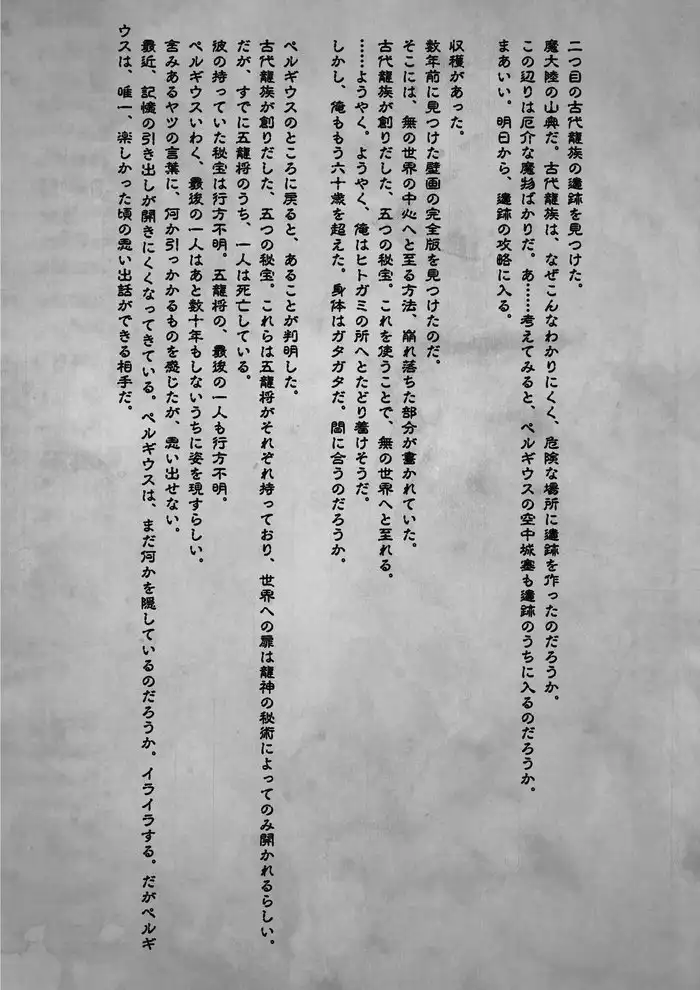 二つ目の古代龍族の遺跡を見つけた。
魔大陸の山奥だ。古代龍族は、なぜこんなわかりにくく、危険な場所に遺跡を作ったのだろうか。
この辺りは厄介な魔物ばかりだ。あ……考えてみると、ペルギウスの空中城塞も遺跡のうちに入るのだろうか。
まあいい。明日から、遺跡の攻略に入る。
収穫があった。
数年前に見つけた壁画の完全版を見つけたのだ。
そこには、無の世界の中心へと至る方法、崩れ落ちた部分が書かれていた。
古代龍族が創りだした、五つの秘宝。これを使うことで、無の世界へと至れる。
……ようやく。ようやく、俺はヒトガミの所へとたどり着けそうだ。
しかし、俺ももう六十歳を超えた。身体はガタガタだ。間に合うのだろうか。
ペルギウスのところに戻ると、あることが判明した。
古代龍族が創りだした、五つの秘宝。これらは五龍将がそれぞれ持っており、世界への扉は龍神の秘術によってのみ開かれるらしい。
だが、すでに五龍将のうち、一人は死亡している。
彼の持っていた秘宝は行方不明。五龍将の、最後の一人も行方不明。
ペルギウスいわく、最後の一人はあと数十年もしないうちに姿を現すらしい。
含みあるヤツの言葉に、何か引っかかるものを感じたが、思い出せない。
最近、記憶の引き出しが開きにくくなってきている。ペルギウスは、まだ何かを隠しているのだろうか。イライラする。だがペルギ
ウスは、唯一、楽しかった頃の思い出話ができる相手だ。